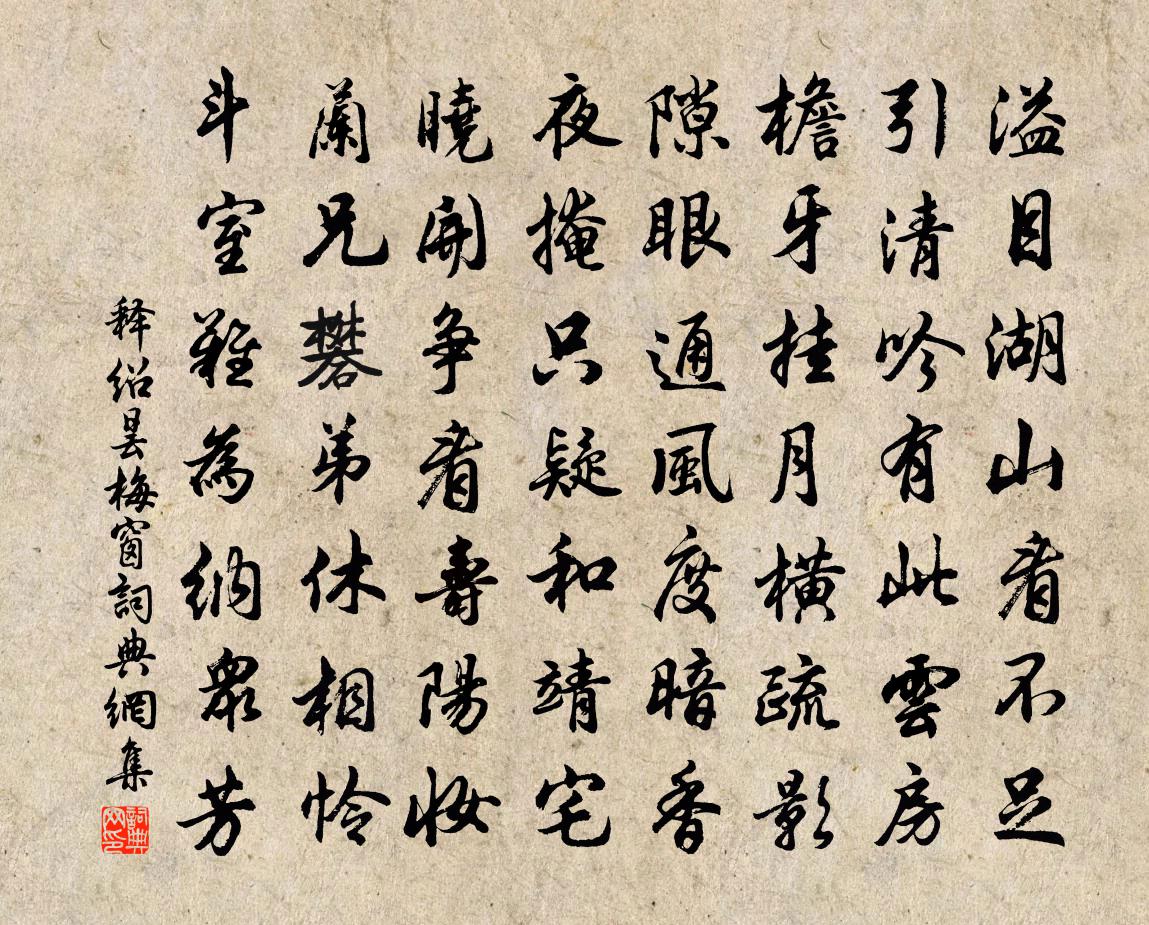 溢目湖山看不足
引清吟有此雲房
檐牙挂月橫疏影
隙眼通風度暗香
夜掩只疑和靖宅
曉開争看壽陽妝
蘭兄礬弟休相怜
斗室難為納眾芳
释绍昙梅窗詞典網集
詞典网印